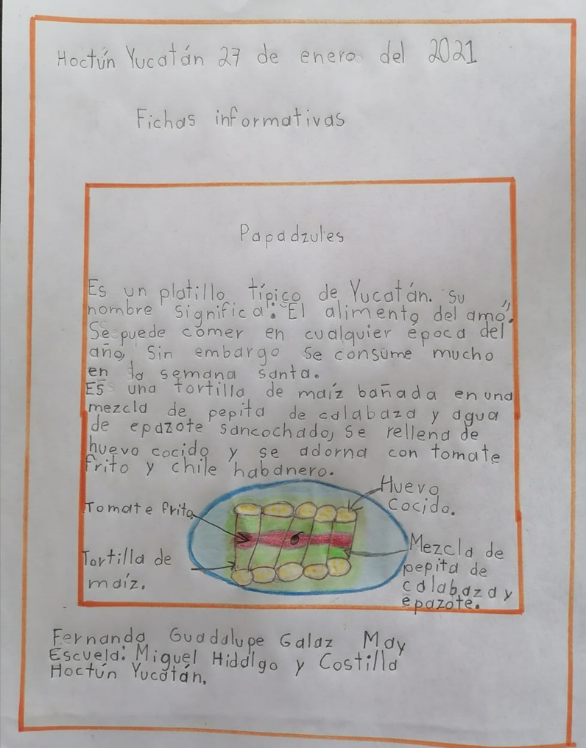 Hoctún Yucatán 27 de enero del 2021
Fichas informativas
Papadzules
Es un platillo típico de Yucatán. su
nombre significa: "El alimento del amo".
Se puede comer en cualquier epoca del
año, Sin embargo se consume mucho
en la semana santa.
ES una tortilla de maíz bañada en una
mezcla de pepita de calabaza y agua
de epazote sancochado, Se rellena de
huevo cocido y se adorna con tomate
frito y chile habanero.
Huevo
cocido.
Tomate frito
Tortilla de
maíz.
Mezcla de
pepita de
calabaza y
epazote.
Fernanda Guadalupe Galaz May
Escuela: Miguel Hidalgo y Costilla
Hoctún Yucatán.